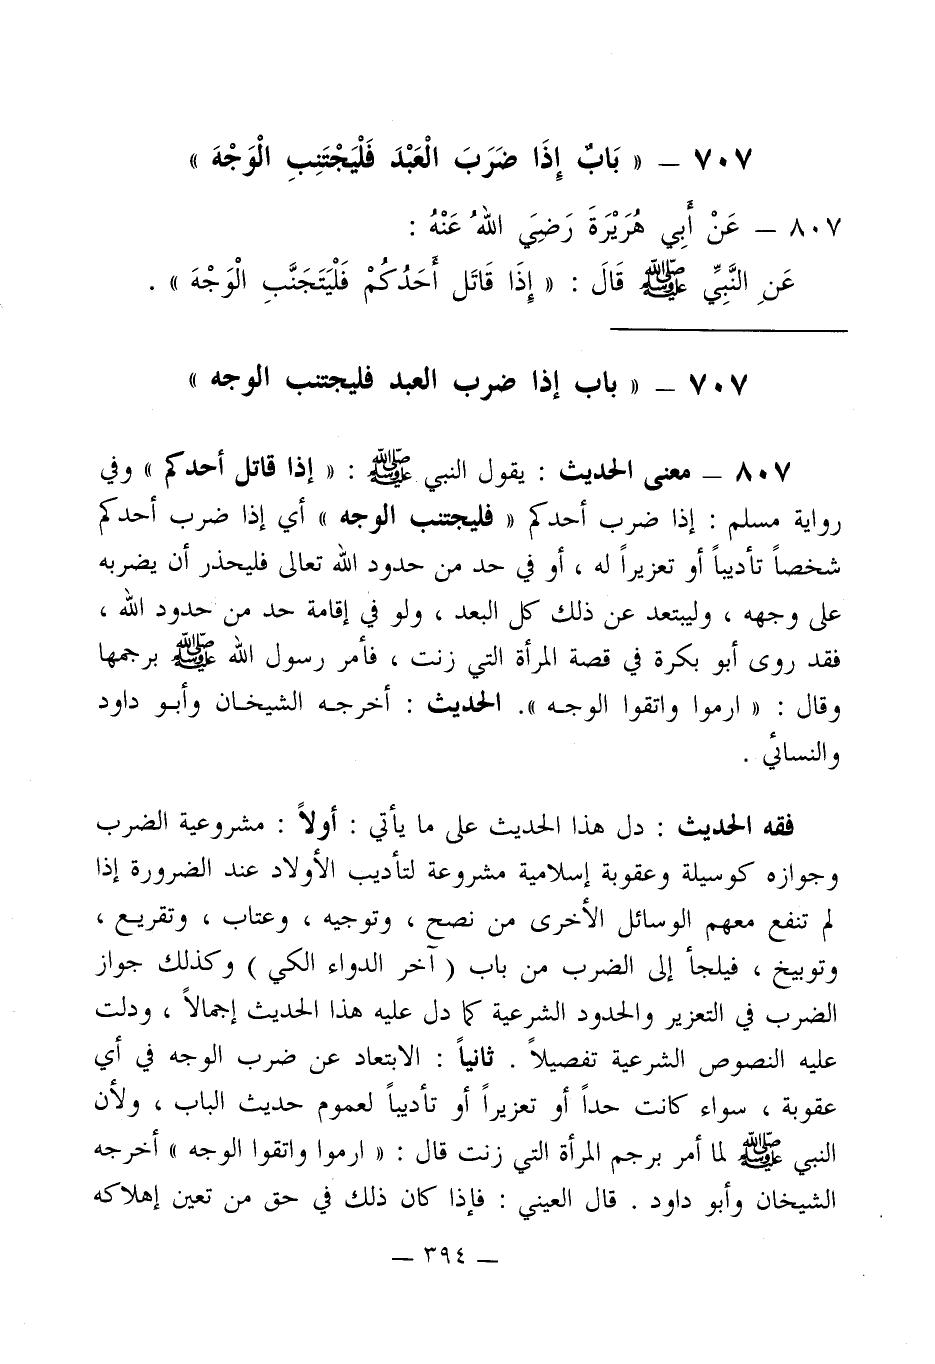 ٧٠٧ – « بَابٌ إِذَا ضَرَبَ الْعَبْدَ فَلْيَجْتَنِبِ الْوَجْهَ »
٨٠٧ – عَنْ أَبِي هُرَيْرَةَ رَضِيَ اللهُ عَنْهُ :
عَنِ النَّبِّي ﷺ قَالَ : « إِذَا قَاتَل أَحَدُكُمْ فَلْيَتَجَنَّبِ الْوَجْهَ » .
٧٠٧ – « باب إذا ضرب العبد فليجتنب الوجه »
٨٠٧ – معنى الحديث : يقول النبي ﷺ : « إذا قاتل أحدكم » وفي
رواية مسلم : إذا ضرب أحدكم « فليجتنب الوجه » أي إذا ضرب أحدكم
شخصاً تأديباً أو تعزيراً له ، أو في حد من حدود الله تعالى فليحذر أن يضربه
على وجهه ، وليبتعد عن ذلك كل البعد ، ولو في إقامة حد من حدود الله ،
فقد روى أبو بكرة في قصة المرأة التي زنت ، فأمر رسول الله ﷺ برجمها
وقال : « ارموا واتقوا الوجه ». الحديث : أخرجه الشيخان وأبو داود
والنسائي .
فقه الحديث : دل هذا الحديث على ما يأتي : أولاً : مشروعية الضرب
وجوازه كوسيلة وعقوبة إسلامية مشروعة لتأديب الأولاد عند الضرورة إذا
لم تنفع معهم الوسائل الأخرى من نصح ، وتوجيه ، وعتاب ، وتقريع ،
وتوبيخ ، فيلجأ إلى الضرب من باب ( آخر الدواء الكي ) وكذلك جواز
الضرب في التعزير والحدود الشرعية كما دل عليه هذا الحديث إجمالاً ، ودلت
عليه النصوص الشرعية تفصيلاً . ثانياً : الابتعاد عن ضرب الوجه في أي
عقوبة ، سواء كانت حداً أو تعزيراً أو تأديباً لعموم حديث الباب ، ولأن
النبي ﷺ لما أمر برجم المرأة التي زنت قال : « ارموا واتقوا الوجه » أخرجه
الشيخان وأبو داود . قال العيني : فإذا كان ذلك في حق من تعين إهلاكه
– ٣٩٤ –